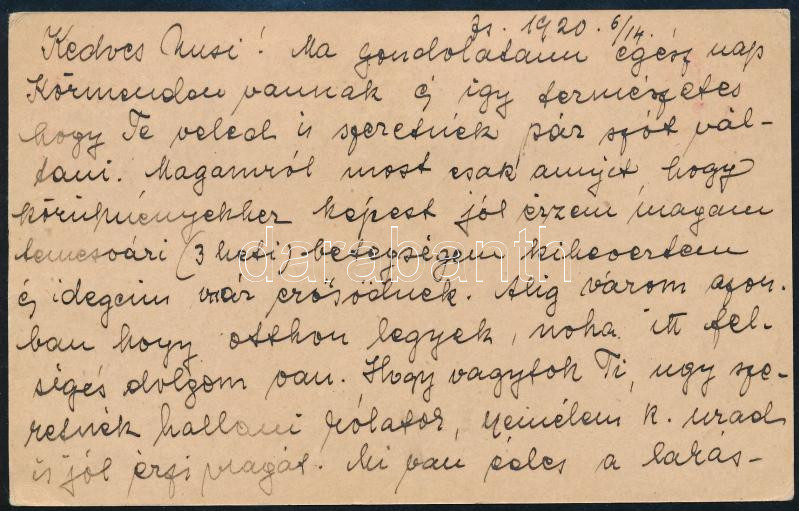 Is. 1920. 6/14.
Kedves Nusi! Ma gondolataim egész nap
Körmenden vannak és így természetes
hogy Te veled is szeretnék pár szót vál-
tani. Magamról most csak annyit hogy
körülményekhez képest jól érzem magam
temesvári (3 heti) betegségem kihevertem
és idegeim már erősödnek. Alig várom azon-
ban hogy otthon legyek, noha itt fel-
séges dolgom van. Hogy vagytok Ti, ugy sze-
retnék hallani Rólatok, remélem k. urad
is jól érzi magát. Mi van édes a lakás-
darabanth